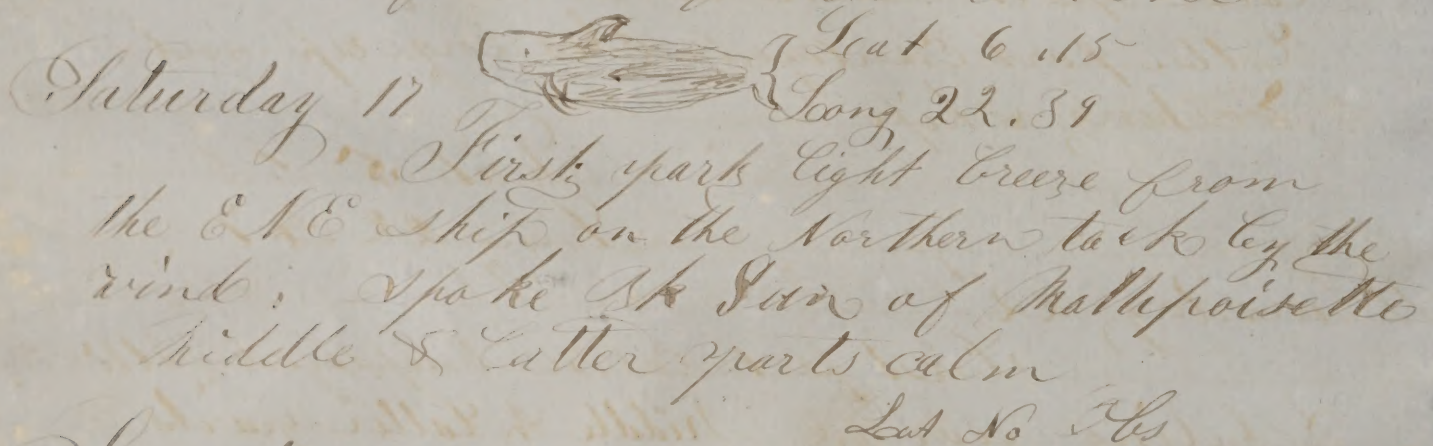 Lat 6.15
Saturday 17
Long 22.39
First part light breeze from
the ENE ship on the Northern tack by the
wind. Spoke Bk Sun of Mattapoisette
Middle & Latter parts calm
Lat No Obs